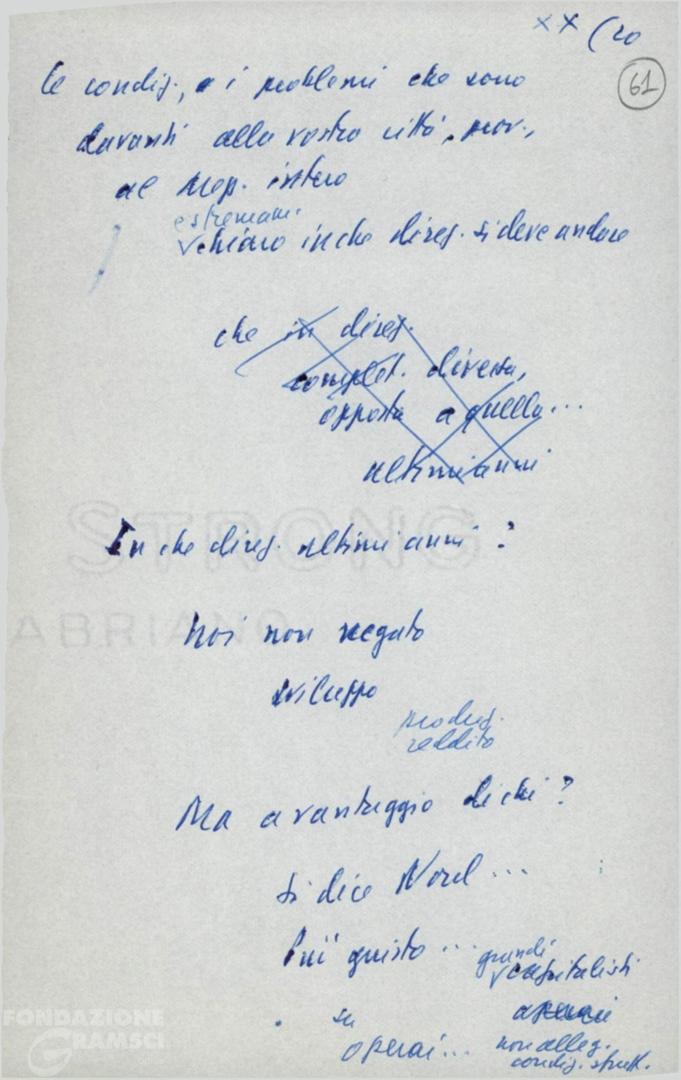 xx (20
61
le condiz., e i problemi che sono
davanti alla vostra città, prov.,
al Mezz. intero
estremam.
chiaro in che direz. si deve andare
che in direz.
complet. diversa,
opposta a quella...
ultimi anni
In che direz. ultimi anni?
STRONG
FABRIANO
Noi non negato
sviluppo
produz.
reddito
Ma a vantaggio di chi?
Si dice Nord...
Più giusto... grandi
capitalisti
operai
su
operai... non alleg.
condiz. sfrutt.
FONDAZIONE
GRAMSCI